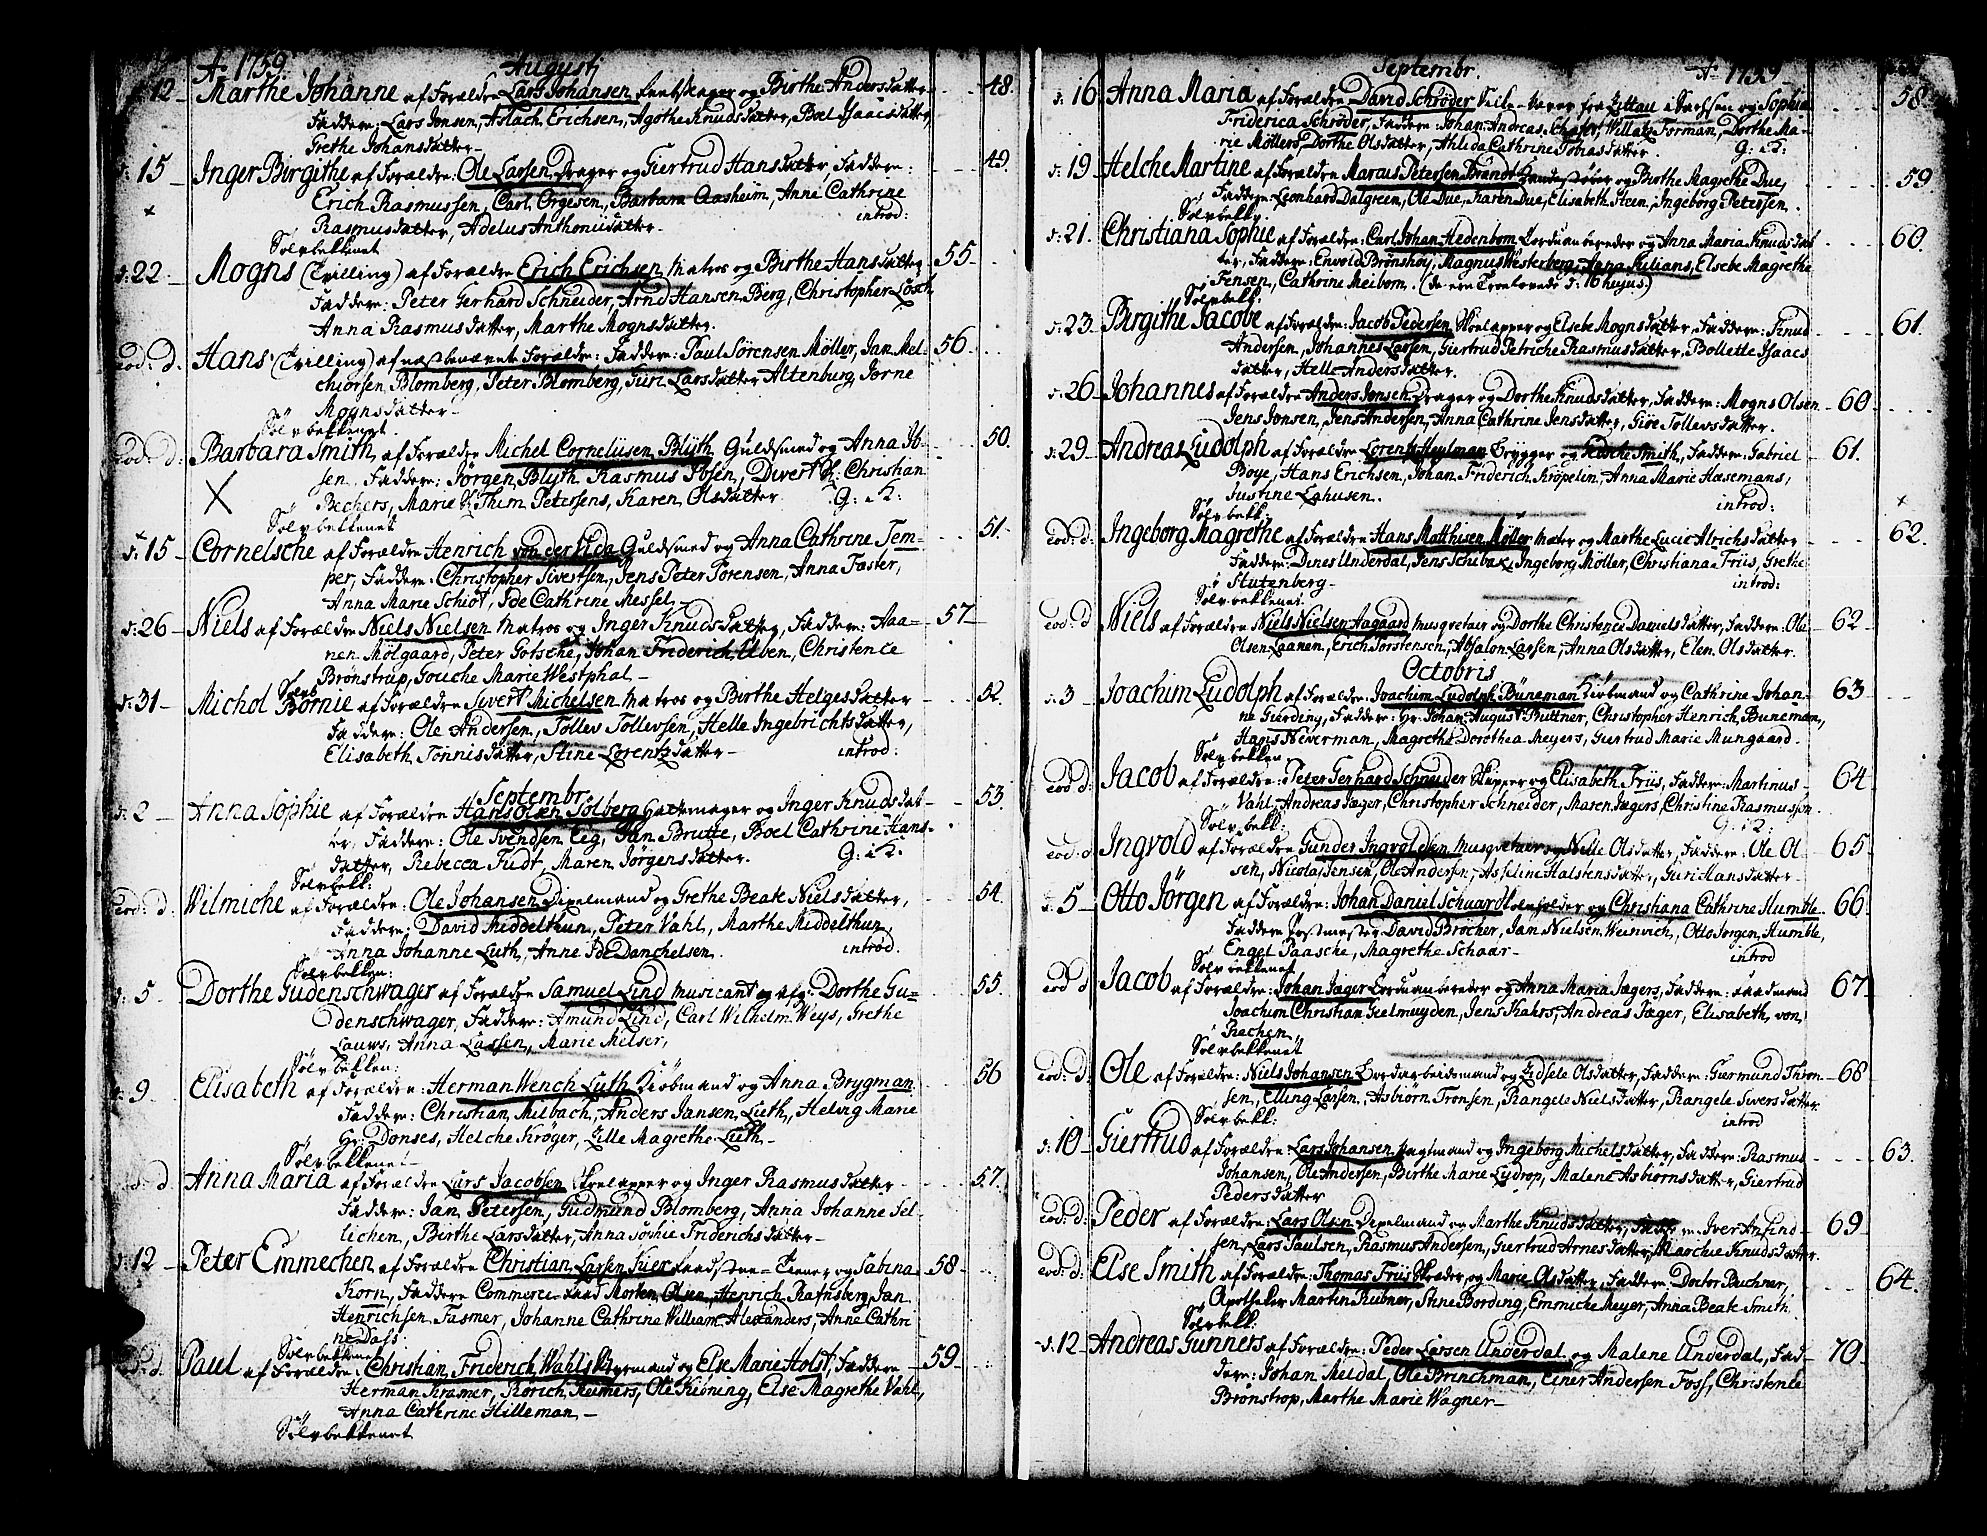 Ao 1759. Augustj
12 Marthe Johanne af Forældre Lars Johansen og Birthe Andersdatter 48.
Faddere: Lars Jonsen, Aslach Erichsen, Agothe Knudsdatter, Boel Isaacsdatter,
Grethe Johansdatter
d: 15 Inger Birgithe af Forældre: Ole Larsen Drager og Giertrud Hansdatter, Faddere: 49.
Erich Rasmussen, Carl Örgesen, Barbara Aasheim, Anne Cathrine
Rasmusdatter, Adelus Anthoniidatter introd:
Sölvbekkenet
d: 22 Mogns (Tvilling) af Forældre Erich Erichsen Matros og Birthe Hansdatter 55
Faddere: Peter Gerhard Schneider, Arnd Hansen Berg, Christopher Losch
Anna Rasmusdatter, Marthe Mognsdatter.
eod: d. Hans (Tvilling) af næstbenævnte Forældre: Faddere: Paul Sörensen Möller, Jan Mel- 56
chiorsen Blomberg, Peter Blomberg, Guri Larsdatter Altenburg, Jorne
Mognsdatter
Sölvbekkenet
eod: d: Barbara Smith af Forældre Michel Corneliisen Blÿth Guldsmed og Anna Ib- 50.
sen. Faddere: Jörgen Blÿth, Rasmus Ibsen, Divert Christian
Bechers, Marie Thim Petersens, Karen Olsdatter G: K:
Sölvbekkenet
d: 15 Cornelsche af Forældre Henrich von der Lida Guldsmed og Anna Cathrine Tem- 51.
per, Faddere: Christopher Sivertsen, Jens Peter Sörensen, Anna Faster,
Anna Marie Schiöt, Ide Cathrine Messel
d: 26 Niels af Forældre Niels Nielsen Matros og Inger Knudsdatter, Faddere: Haa- 57
nen Mölgaard, Peter Götsche, Johan Friderich Uben, Christence
Brönstrup, Gouche Marie Westphal
d: 31 Michol Bornie af Forældre Sivert Michelsen Matros og Birthe Helgesdatter 52.
Faddere: Ole Andersen, Tollev Tollevsen, Helle Ingebrichtsdatter,
Elisabeth Tönnisdatter, Stine Lorentzdatter introd:
Septembr.
d: 2 Anna Sophie af Forældre Hans Olsen Solberg Hattemager og Inger Knudsdat- 53.
ter, Faddere: Ole Svendsen Eeg, Jan Brutte, Boel Cathrine Hans-
datter, Rebecca Fudt, Maren Jörgensdatter. G: K:
Sölvbekk:
eod: d. Wilmiche af Forældre: Ole Johansen Dixelmand og Grethe Beate Nielsdatter, 54.
Faddere: David Middelthun, Peter Vahl, Marthe Middelthun,
Anna Johanne Luth, Anne Danchelsen. introd.
Sölvbekken:
d: 5 Dorthe Gudenschwager af Forældre Samuel Lind Musicant og Dorthe Gu- 55.
denschwager, Faddere: Amund Lind, Carl Wilhelm Weys, Grethe
Lauws, Anna Lassen, Marie Melser,
Sölvbekken:
d: 9 Elisabeth af Forældre: Herman Wench Luth Kiöbmand og Anna Brygman 56
Faddere: Christian Milbach, Anders Jansen Luth, Helvig Marie
Donses, Helche Kröger, Lille Magrethe Luth
Sölvbekkenet
d Anna Maria af Forældre Lars Jacobsen Skoelapper og Inger Rasmusdatter 57.
Faddere: Jan Petersen, Gudmund Blomberg, Anna Johanne Sel-
lichen, Birthe Larsdatter, Anna Sophie Friderichsdatter
d: 12 Peter Emmechen af Forældre Christian Larsen Kier og Sabina 58
Korn, Faddere Commerce Raad Morten Olsen, Henrich Rafnsberg, Jan
Henrichsen Fasmer, Johanne Cathrine William Alexanders, Anne Cathri
ne Dass
Sölvbekkenet
Paul af Forældre: Christian Friderich Wahl og Else Marie Holst, Faddere 59
Herman Kramer, Rorich Reimers, Ole Kiöning, Else Magrethe Vahl,
Anna Cathrine Hilleman
Sölvbekkenet
Septembr. Ao 1759
d: 16 Anna Maria af Forældre David Schröder fra Zittau i Sachsen og Sophia 58.
Friderica Schröder, Faddere: Johan Andreas Schäfer, Willatz Forman, Dorthe Ma-
rie Möllers, Dorthe Olsdatter, Ahlida Cathrine Tobiasdatter. G: K:
d: 19 Helche Martine af Forældre Marcus Petersen Brandt og Birthe Magrethe Due, 59
Faddere Leonhard Dalgreen, Ole Due, Karen Due, Elisabeth Steen, Ingeborg Petersen.
Sölvbekk.
d: 21. Christiana Sophie af Forældre: Carl Johan Hedenbom Corduanbereder og Anna Maria Knudsdat 60.
ter, Faddere: Envold Brönshoy, Magnus Westerberg, Anna Julians, Elsebe Magrethe
Jensen, Cathrine Meibom. (de ere Troelovede d: 16 hujus.)
Sölvbekk:
d: 23. Birgithe Jacobe af Forældre: Jacob Pedersen Skoelapper og Elsebe Mognsdatter, Faddere: Knud 61.
Andersen, Johannes Larsen, Giertrud Petriche Rasmusdatter, Bollette Isaacs
datter, Helle Andersdatter.
d: 26 Johannes af Forældre Anders Jonsen Drager og Dorthe Knudsdatter, Faddere: Mogns Olsen 60
Jens Jonsen, Jens Andersen, Anna Cathrine Jensdatter, Giöe Tollevsdatter.
d: 29 Andreas Ludolph af Forældre Lorentz Heylman Brygger og Smith, Faddere: Gabriel 61.
Boye, Hans Erichsen, Johan Friderich Kröpelin, Anna Marie Hasemans,
Justine Lahusen. introd:
Sölvbekk:
eod: d: Ingeborg Magrethe af Forældre Hans Matthisen Möller og Marthe Lucie Alrichsdatter 62.
Faddere: Dines Underdal, Jens Schibak, Ingeborg Möller, Christiana Friis, Grethe
Stutenberg introd:
Sölvbekkenet
eod: d Niels af Forældre Niels Nielsen Aagaard Musqvetair og Dorthe Christence Danielsdatter, Faddere: Ole 62
Olsen Laanen, Erich Torstensen, Absalon Larsen, Anna Olsdatter, Elen Olsdatter.
Octobris
d: 3 Joachim Ludolph af Forældre: Joachim Ludolph Büneman Kiöbmand og Cathrine Johan- 63
ne Gerding, Faddere: Hr: Johan August Buttner, Christopher Henrich Buneman,
Hans Neverman, Magretha Dorothea Meyers, Giertrud Marie Mungaard.
Sölvbekken
eod d: Jacob af Forældre: Peter Gerhard Schneider Skipper og Elisabeth Friis, Faddere: Martinus 64
Vahl, Andreas Jæger, Christopher Schneider, Maren Jægers, Christine Rasmusson.
Sölvbekk: G: K:
eod: d Ingvold af Forældre Gunder Ingvoldsen Musqvetair og Nille Olsdatter, Faddere: Ole Ol- 65
sen, Nicolai Jensen, Ole Andersn, Asseline Halstensdatter, Guri Hansdatter
d: 5 Otto Jörgen af Forældre: Johan Daniel Schuardt og Christiana Cathrine Humble 66
Faddere Postmester David Bröcher, Jan Nielsen Weinvich, Otto Jörgen Humble,
Engel Paasche, Magrethe Schaar introd
Sölvbekkenet
eod d Jacob af Forældre: Johan Jæger Corduanbereder og Anna Maria Jægers, Faddere: Raadmand 67
Joachim Christian Geelmuyden, Jens Kahrs, Andreas Jæger, Elisabeth von
Rachen
Sölvbekkenet
eod: d: Ole af Forældre: Niels Johansen og Lidsele Olsdatter, Faddere: Giermund Thron 68
sen, Elling Larsen, Asbiörn Tronsen, Rangele Nielsdatter, Rangele Siversdatter
Sölvbekk: introd
d: 10 Giertrud af Forældre: Lars Johansen Vagtmand og Ingeborg Michelsdatter, Faddere: Rasmus 63.
Johansen, Ole Andersen, Birthe Marie Lydrop, Malene Asbiörnsdatter, Giertrud
Pedersdatter
eod: d: Peder af Forældre: Lars Olsen Dixelmand og Marthe Knudsdatter, Iver Amund- 69
sen, Lars Paulsen, Rasmus Andersen, Giertrud Arnesdatter, Marchie Knudsdatter.
eod: d. Else Smith af Forældre: Thomas Friis Skræder og Marie Olsdatter, Faddere Doctor Buchner, 64.
Apotheker Martin Rubner, Stine Bording, Emmiche Meyer, Anna Beate Smith.
Sölvbekk:
d. 12 Andreas Gunners af Forældre: Peder Larsen Underdal og Malene Underdal, Fad- 70
dere: Johan Meldal, Ole Brinchman, Einer Andersen Foss, Christence
Brönstrop, Marthe Marie Wagner